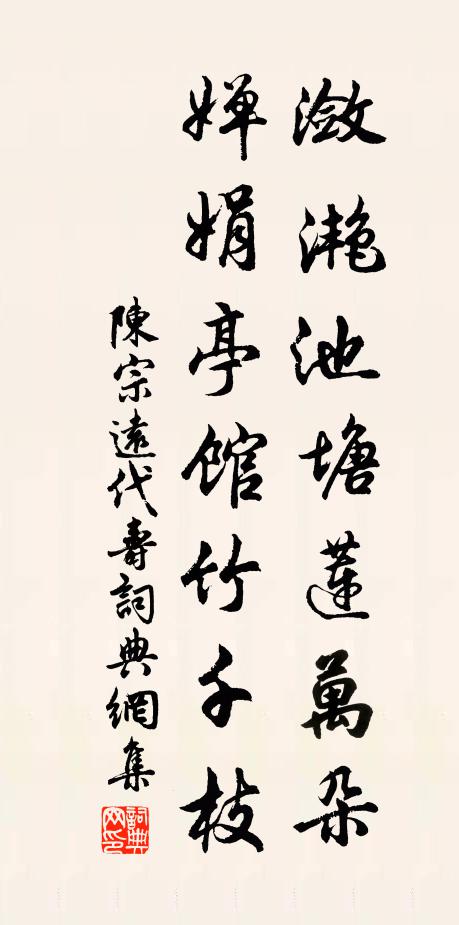 瀲灩池塘蓮萬朵
嬋娟亭館竹千枝
陳宗遠代壽詞典網集
詞典網印